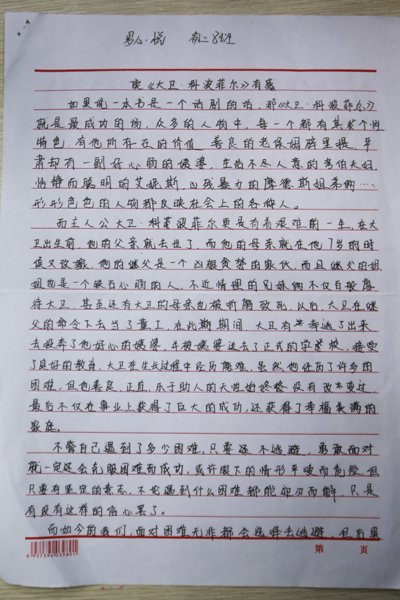 易心·悦 初二3班
读《大卫·科波菲尔》有感
如果说一本书是一个话剧的场,那《大卫·科波菲尔》
就是最成功的场,众多的人物中,每一个都有其某个性
特色,有他所存在的价值,善良的老保姆辟果提,严
肃却有一副好心肠的姨婆,生活不尽人意的考伯夫妇
恬静而聪明的艾妮斯,凶残暴力的摩德斯姐弟俩……
形形色色的人物都反映社会上的各种人。
而主人公大卫·科波菲尔更是有着艰难的一生,在大
卫出生前,他的父亲就去世了,而他的母亲就在他7岁的时
候又改嫁,他的继父是一个凶狠贪婪的家伙,而且继父的姐
姐也是一个铁石心肠的人,不近情理的兄妹俩不仅自私虐
待大卫,甚至还有大卫的母亲也被折磨致死,从后,大卫在继
父的命令下去当了童工,在此期间,大卫有幸逃了出来
去投奔了他好心的姨婆,并被姨婆送去了正式的学校,接受
了良好的教育,大卫在生长过程中经历磨难,虽然他经历了许多的
困难,但他善良,正直,乐于助人的天性始终没有改变过
最后不仅在事业上获得了巨大的成功,还获得了幸福美满的
家庭。
不管自己遇到了多少困难,只要还不逃避,勇敢面对
就一定还会克服困难而成功,或许眼下的情形辛酸而危险,但
只要有坚定的意志,不论遇到什么困难都能迎刃而解,只是
有没有这样的信心罢了。
而如今的我们,面对困难无非都会选择去逃避,但后果
第 页